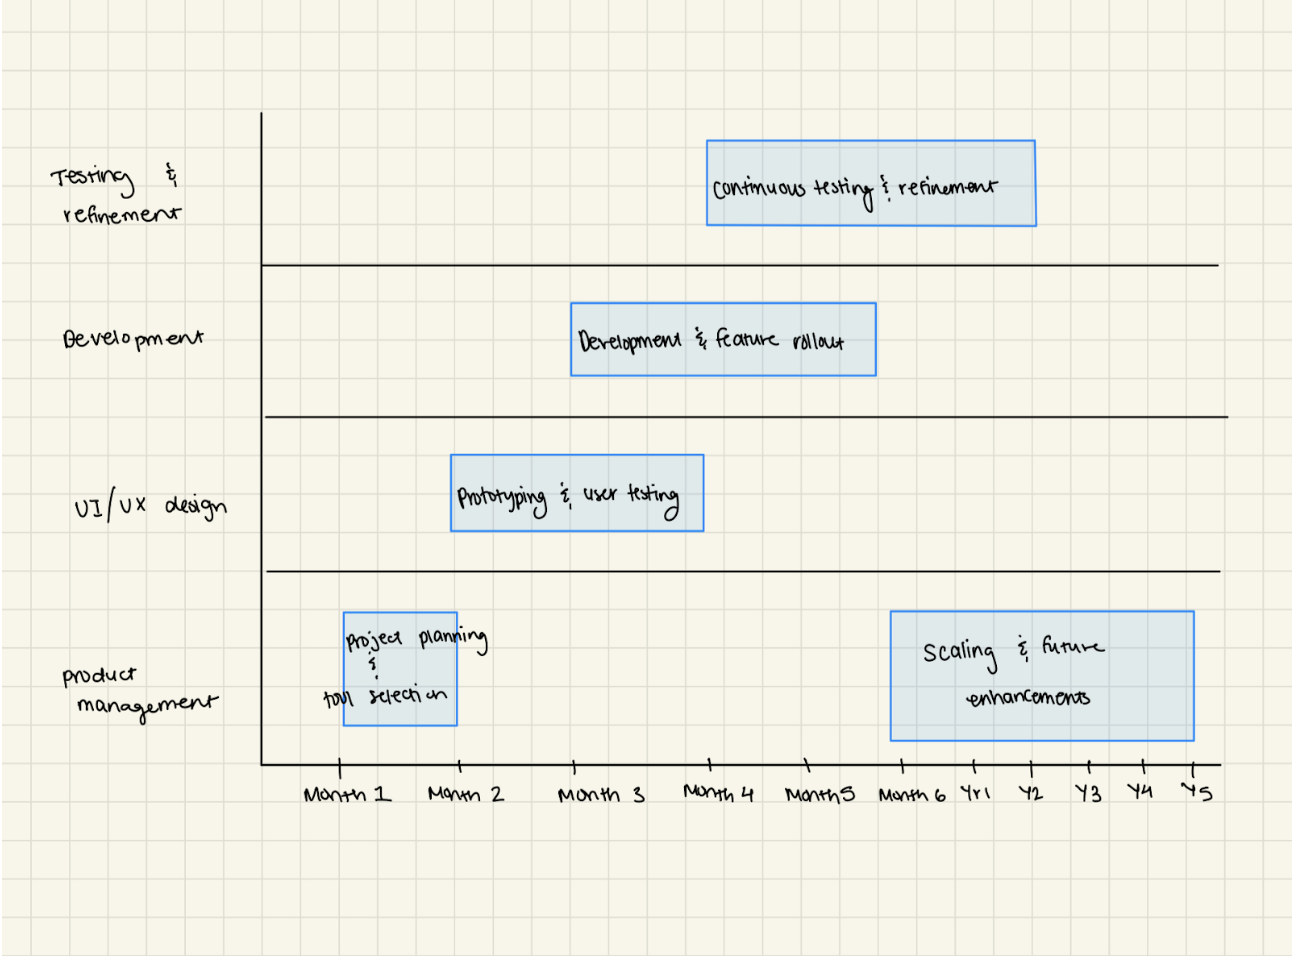 Testing &
refinement
Continuous testing & refinement
Development
Development & feature rollout
UI/UX design
Prototyping & user testing
product
management
project planning
&
tool selection
Scaling & future
enhancements
Month 1 Month 2 Month 3 Month 4 Month 5 Month 6 Yr1 Y2 Y3 Y4 Y5